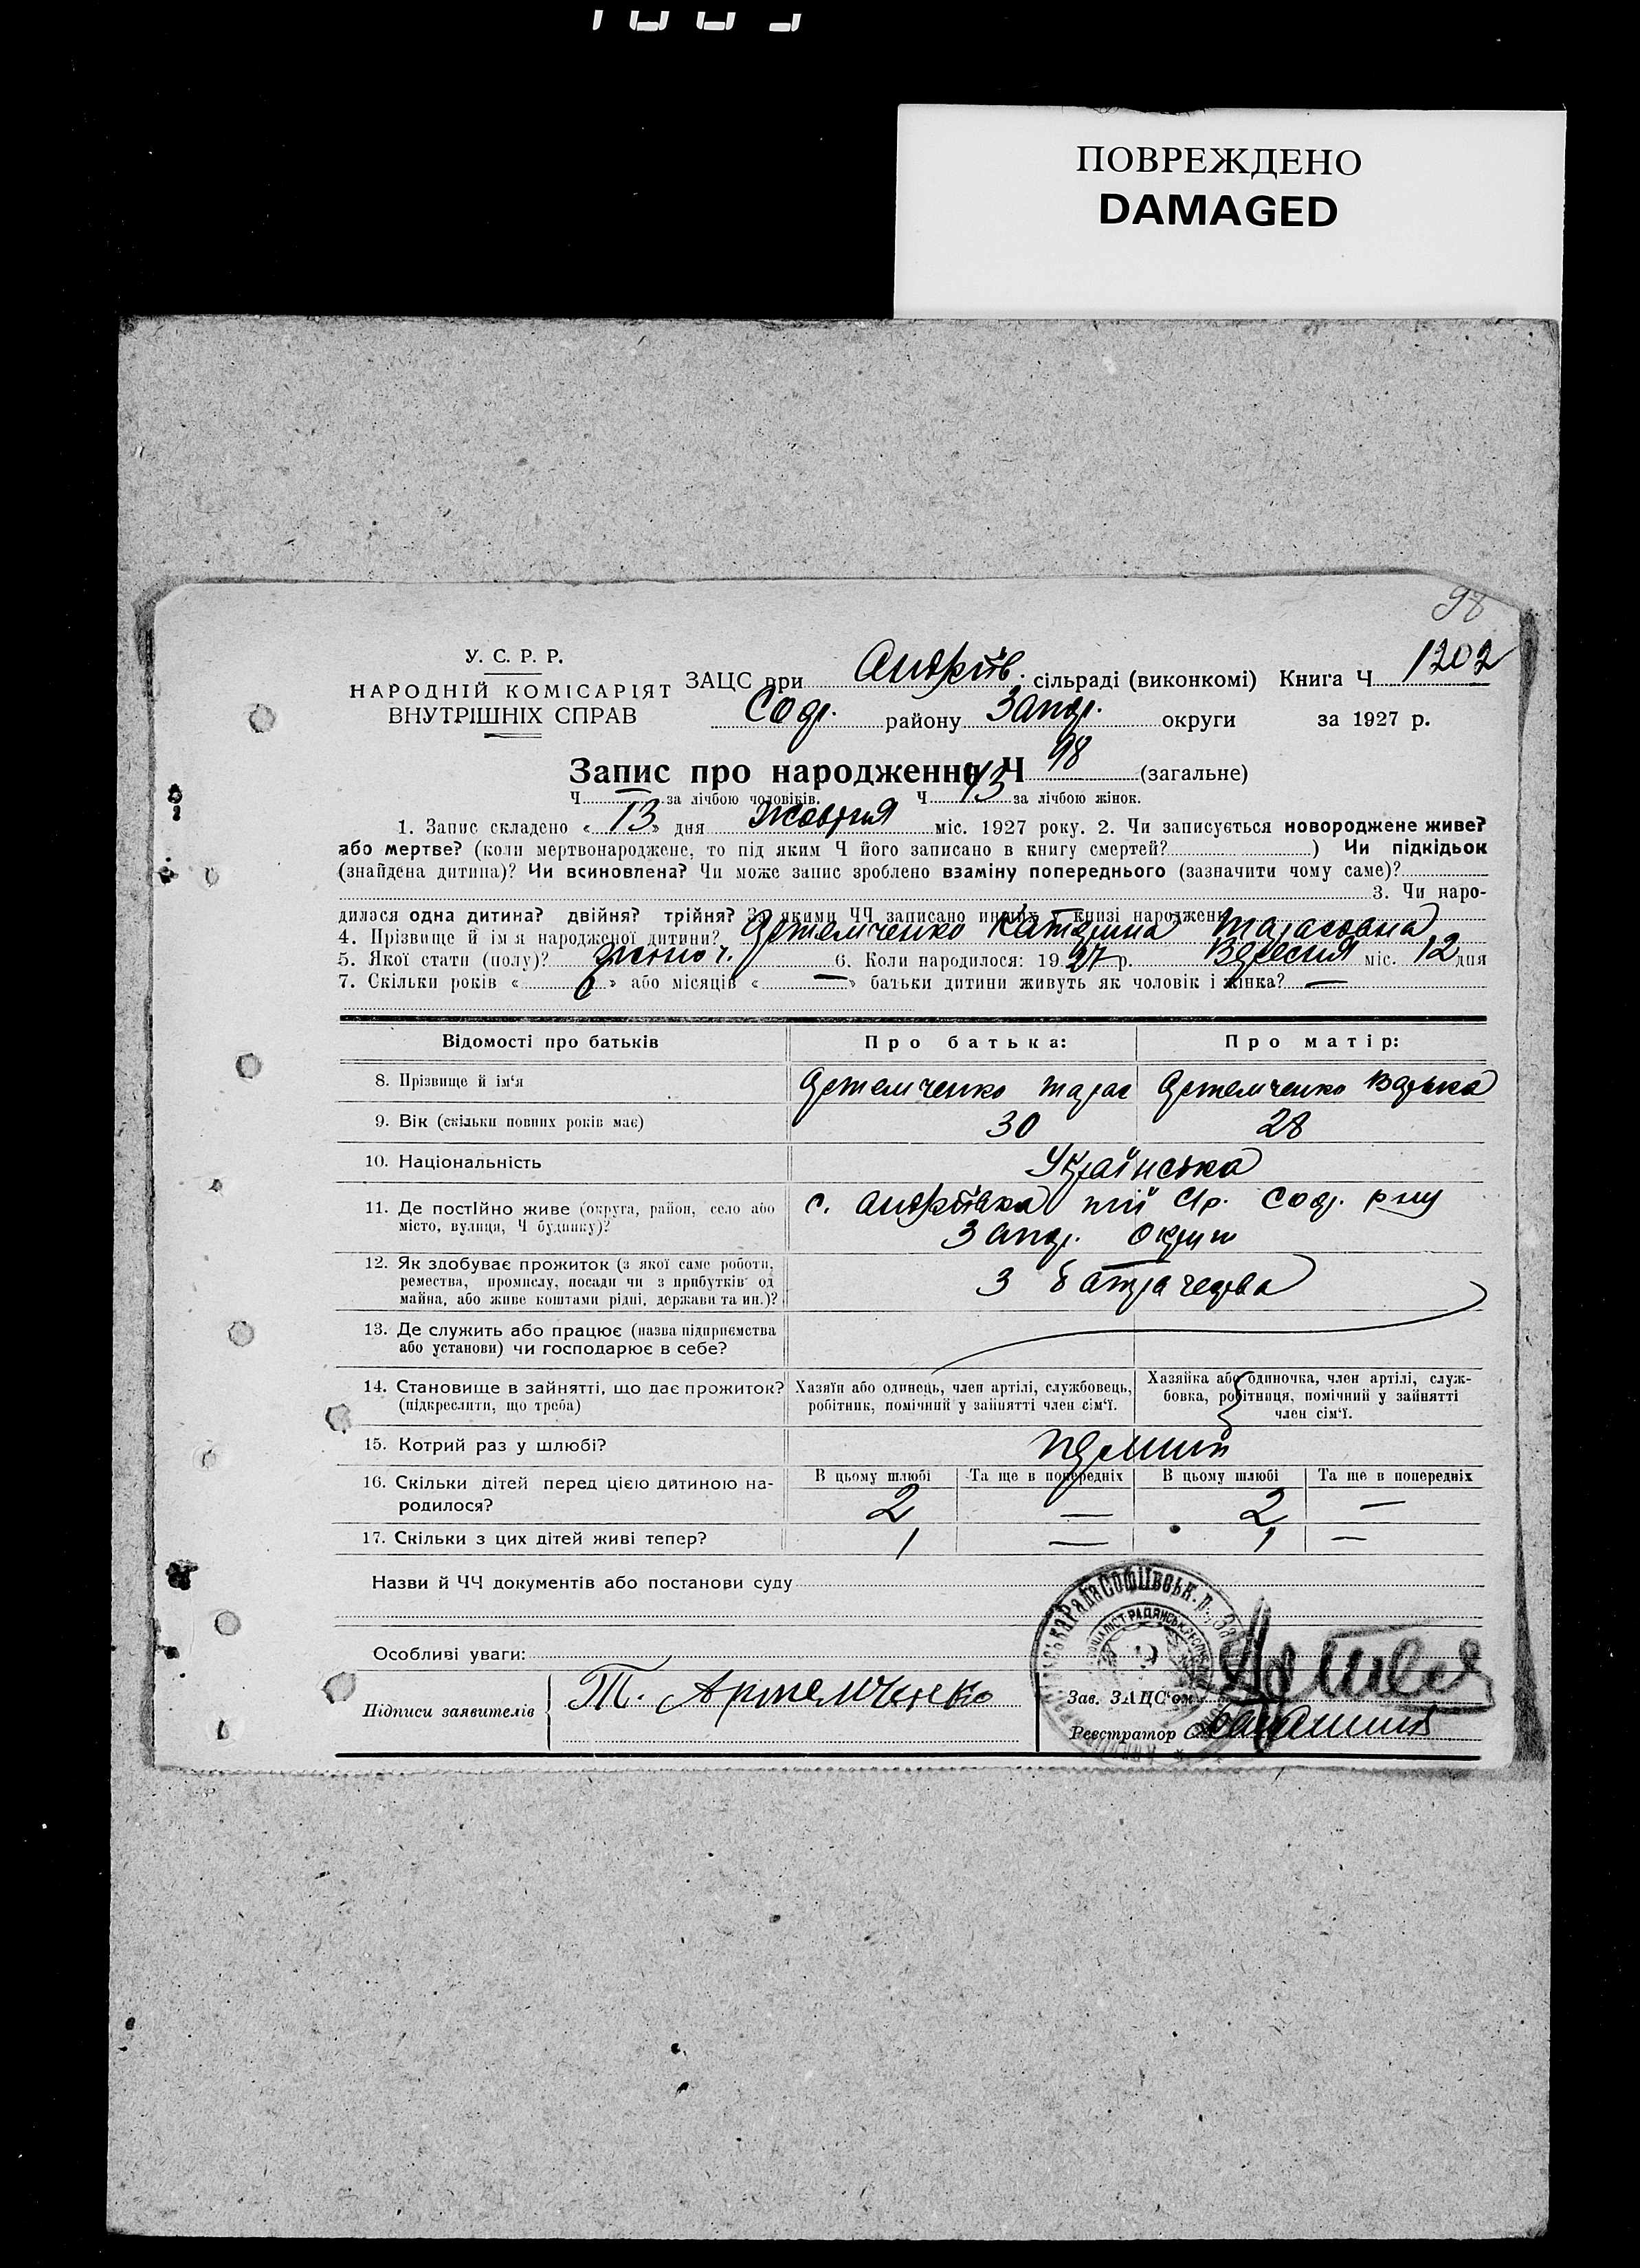 ПОВРЕЖДЕНО
DAMAGED
98
У. С. Р. Р.
НАРОДНІЙ КОМІСАРІЯТ
ВНУТРІШНІХ СПРАВ
ЗАЦС при Андріїв. сільраді (виконкомі) Книга Ч 1202
Соф. району Запор. округи за 1927 р.
Запис про народження Ч 98 (загальне)
Ч — за лічбою чоловіків. Ч 43 за лічбою жінок.
1. Запис складено « 13 » дня Жовтня міс. 1927 року. 2. Чи записується новороджене живе?
або мертве? (коли мертвонароджене, то під яким Ч його записано в книгу смертей? ) Чи підкідьок
(знайдена дитина)? Чи всиновлена? Чи може запис зроблено взаміну попереднього (зазначити чому саме)?
3. Чи наро-
дилася одна дитина? двійня? трійня? За якими ЧЧ записано инших у книзі народжень
4. Прізвище й ім'я народженої дитини? Артемченко Катерина Тарасовна
5. Якої стати (полу)? жіноч. 6. Коли народилося: 1927 р. Вересня міс. 12 дня
7. Скільки років « » або місяців « — » батьки дитини живуть як чоловік і жінка? —
Відомості про батьків
Про батька:
Про матір:
8. Прізвище й ім'я Артемченко Тарас Артемченко Варька
9. Вік (скільки повних років має) 30 28
10. Національність Українська
11. Де постійно живе (округа, район, село або
місто, вулиця, Ч будинку)?
с. Андріївка тії ср. Соф. р-ну
Запор. округи
12. Як здобуває прожиток (з якої саме роботи,
ремества, промислу, посади чи з прибутків од
майна, або живе коштами рідні, держави та ин.)?
З батрачества
13. Де служить або працює (назва підприємства
або установи) чи господарює в себе?
14. Становище в зайнятті, що дає прожиток?
(підкреслити, що треба)
Хазяїн або одинець, член артілі, службовець,
робітник, помічний у зайнятті член сім'ї.
Хазяйка або одиночка, член артілі, служ-
бовка, робітниця, помічний у зайнятті
член сім'ї.
15. Котрий раз у шлюбі? перший
16. Скільки дітей перед цією дитиною на-
родилося?
В цьому шлюбі Та ще в попередніх В цьому шлюбі Та ще в попередніх
2 — 2 —
17. Скільки з цих дітей живі тепер? 1 — 1 —
Назви й ЧЧ документів або постанови суду
Особливі уваги:
Підписи заявителів Т. Артемченко
Зав. ЗАЦС'ом
Реєстратор